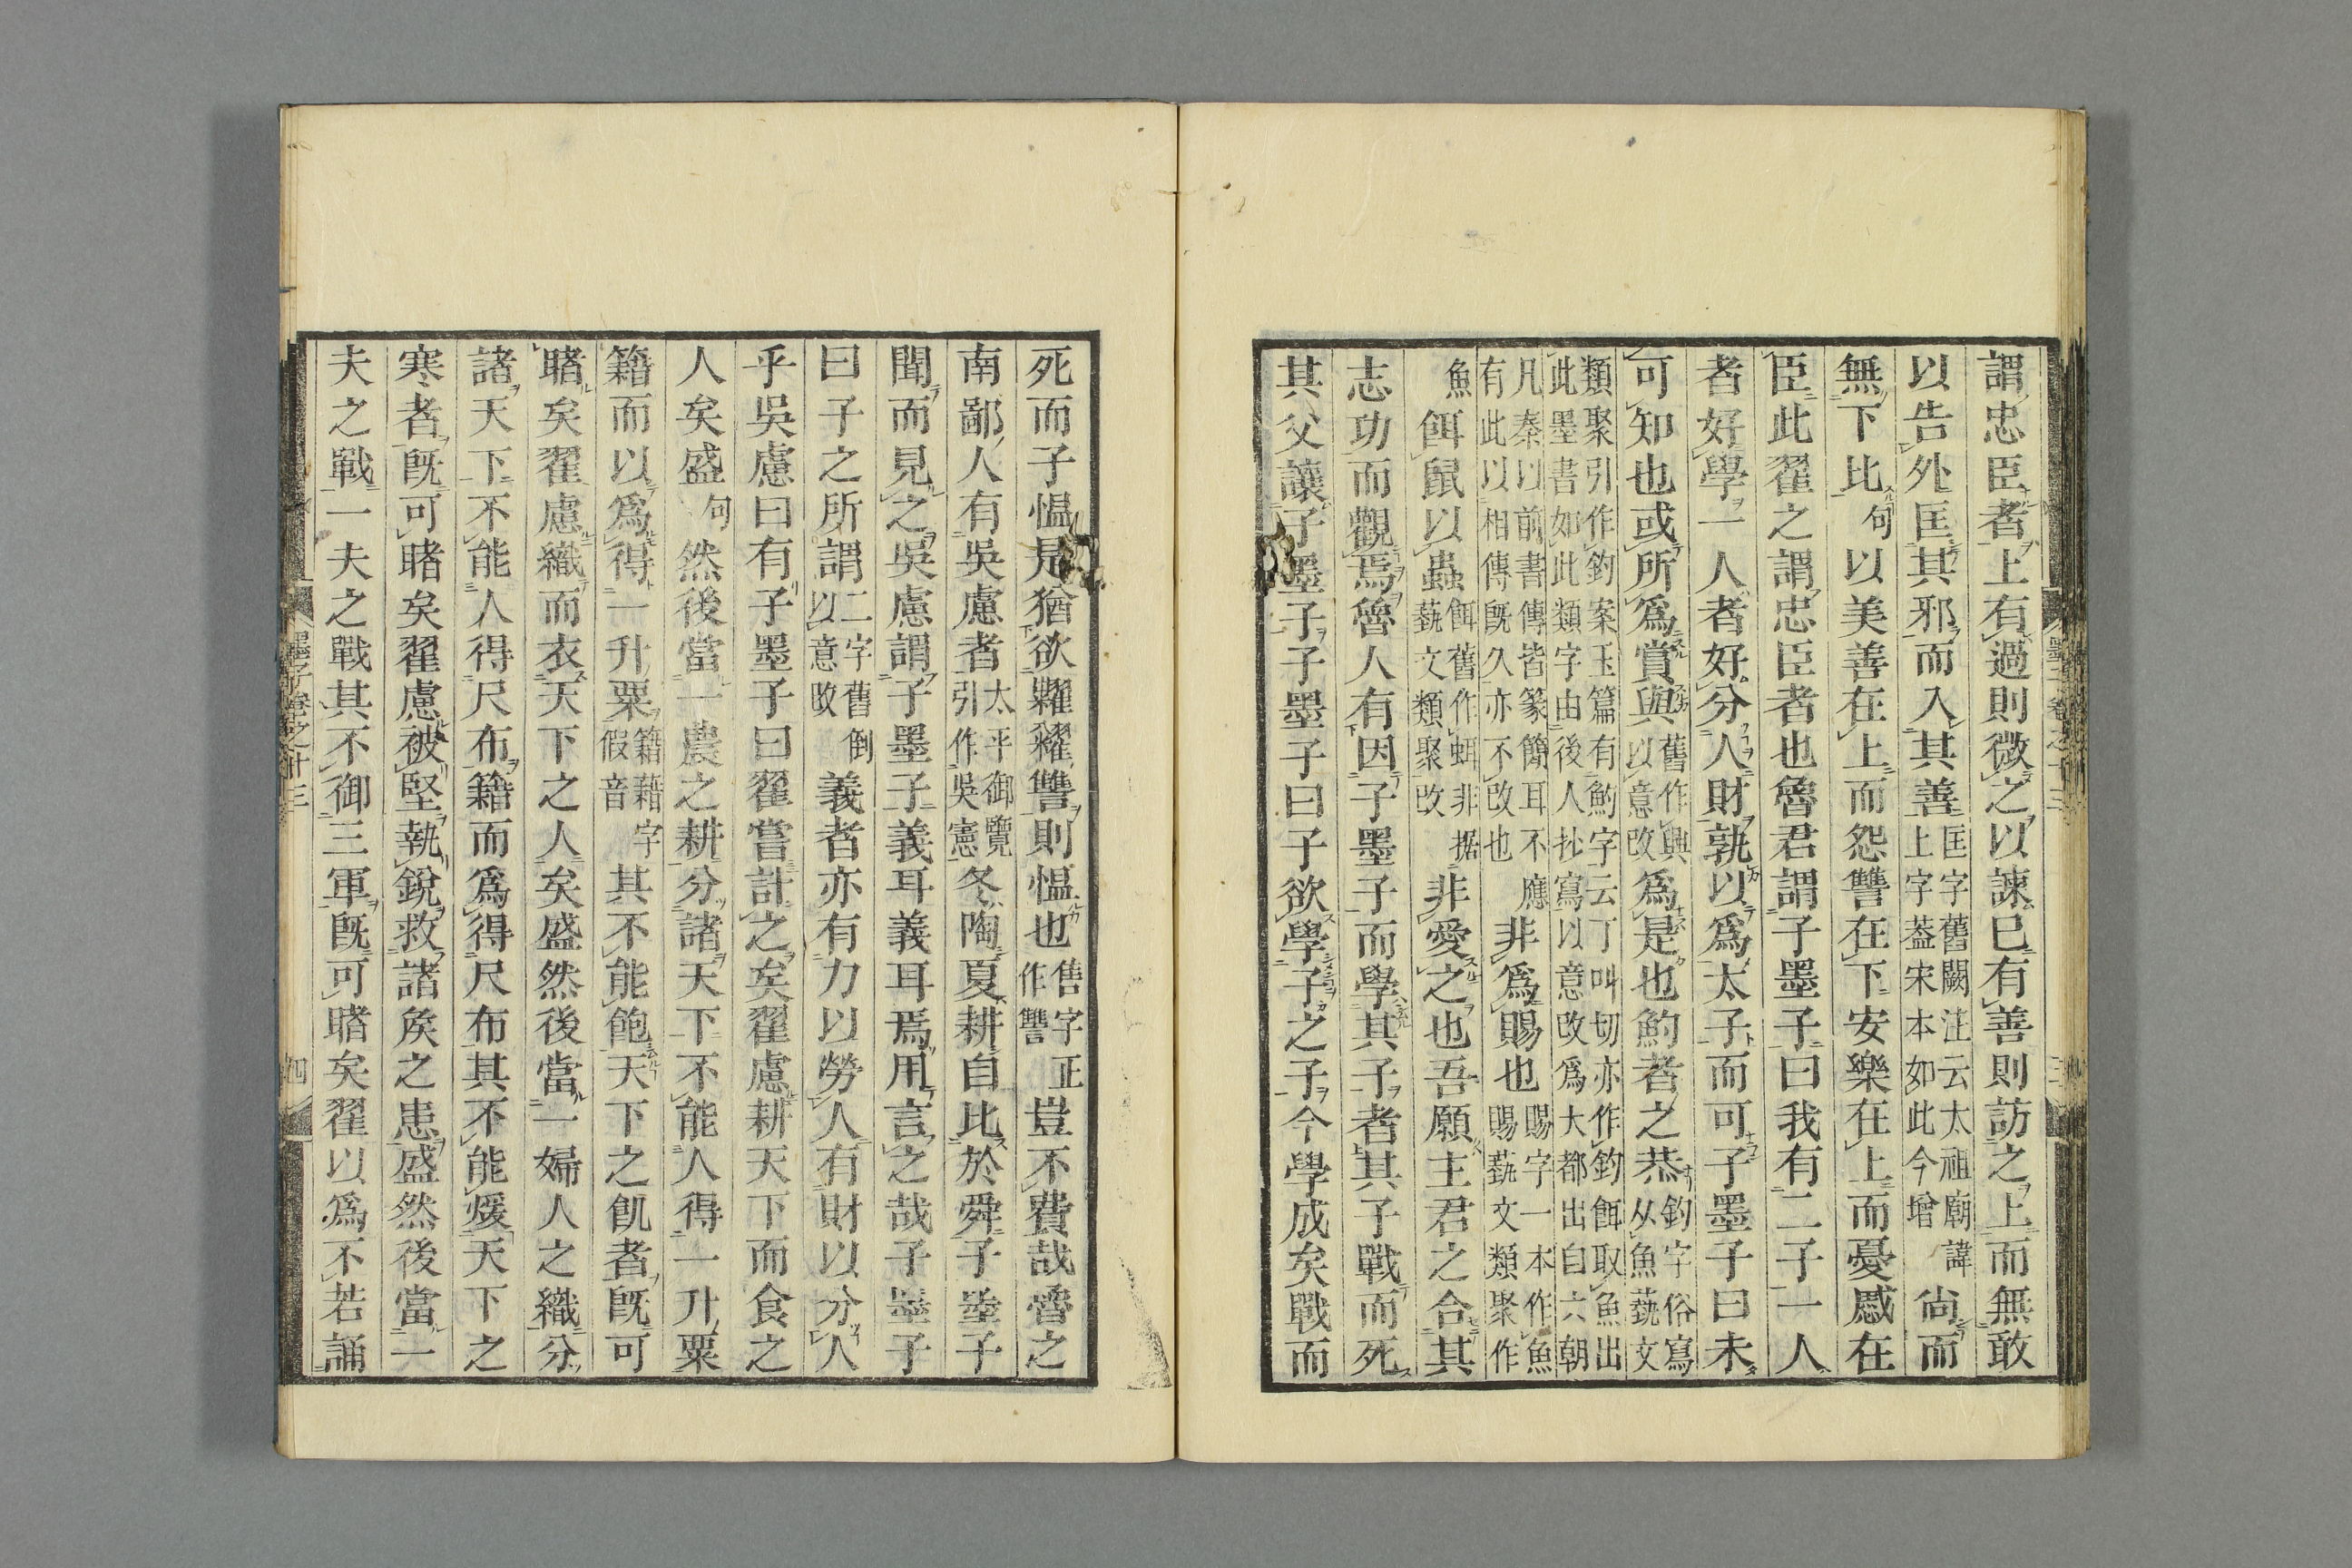 謂忠臣者上有過則微之以諫巳有善則訪之上而無敢
以告外匡其邪而入其善匡字舊闕注云太祖廟諱上字葢宋本如此今增尙而
無下比句以美善在上而怨讐在下安樂在上而憂慼在
臣此翟之謂忠臣者也魯君謂子墨子曰我有二子一人
者好學一人者好分人財孰以爲太子而可子墨子曰未
可知也或所爲賞與舊作興以意改爲是也魡者之恭釣字俗寫从魚藝文
類聚引作釣案玉篇有魡字云丁叫切亦作釣餌取魚出
此墨書如此類字由後人抄寫以意改爲大都出自六朝
凡秦以前書傳皆篆簡耳不應
有此以相傳旣久亦不改也非爲賜也賜字一本作魚賜藝文類聚作
魚餌鼠以蟲餌舊作蛆非据藝文類聚改非愛之也吾願主君之合其
志功而觀焉魯人有因子墨子而學其子者其子戰而死
其父讓子墨子子墨子曰子欲學子之子今學成矣戰而
死而子慍是猶欲糶糴讐則慍也售字正作讐豈不費哉魯之
南鄙人有吳慮者太平御覽引作吳憲冬陶夏耕自比於舜子墨子
聞而見之吳慮謂子墨子義耳義耳焉用言之哉子墨子
曰子之所謂二字舊倒以意改義者亦有力以勞人有財以分人
乎吳慮曰有子墨子曰翟嘗計之矣翟慮耕天下而食之
人矣盛句然後當一農之耕分諸天下不能人得一升粟
籍而以爲得一升粟籍藉字假音其不能飽天下之飢者旣可
睹矣翟慮織而衣天下之人矣盛然後當一婦人之織分
諸天下不能人得尺布籍而爲得尺布其不能煖天下之
寒者旣可睹矣翟慮被堅執銳救諸矦之患盛然後當一
夫之戰一夫之戰其不御三軍旣可睹矣翟以爲不若誦
墨子卷之十三
四